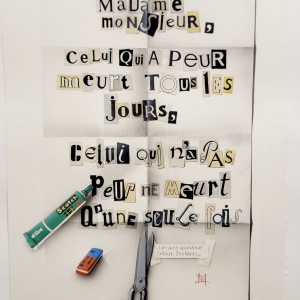 Madame
monsieur,
Celui Qui A PEUR
meurt TOUS LES
jours,
Celui qui n'a PAS
Peur ne meurt
Qu'une seule fois
Scotch